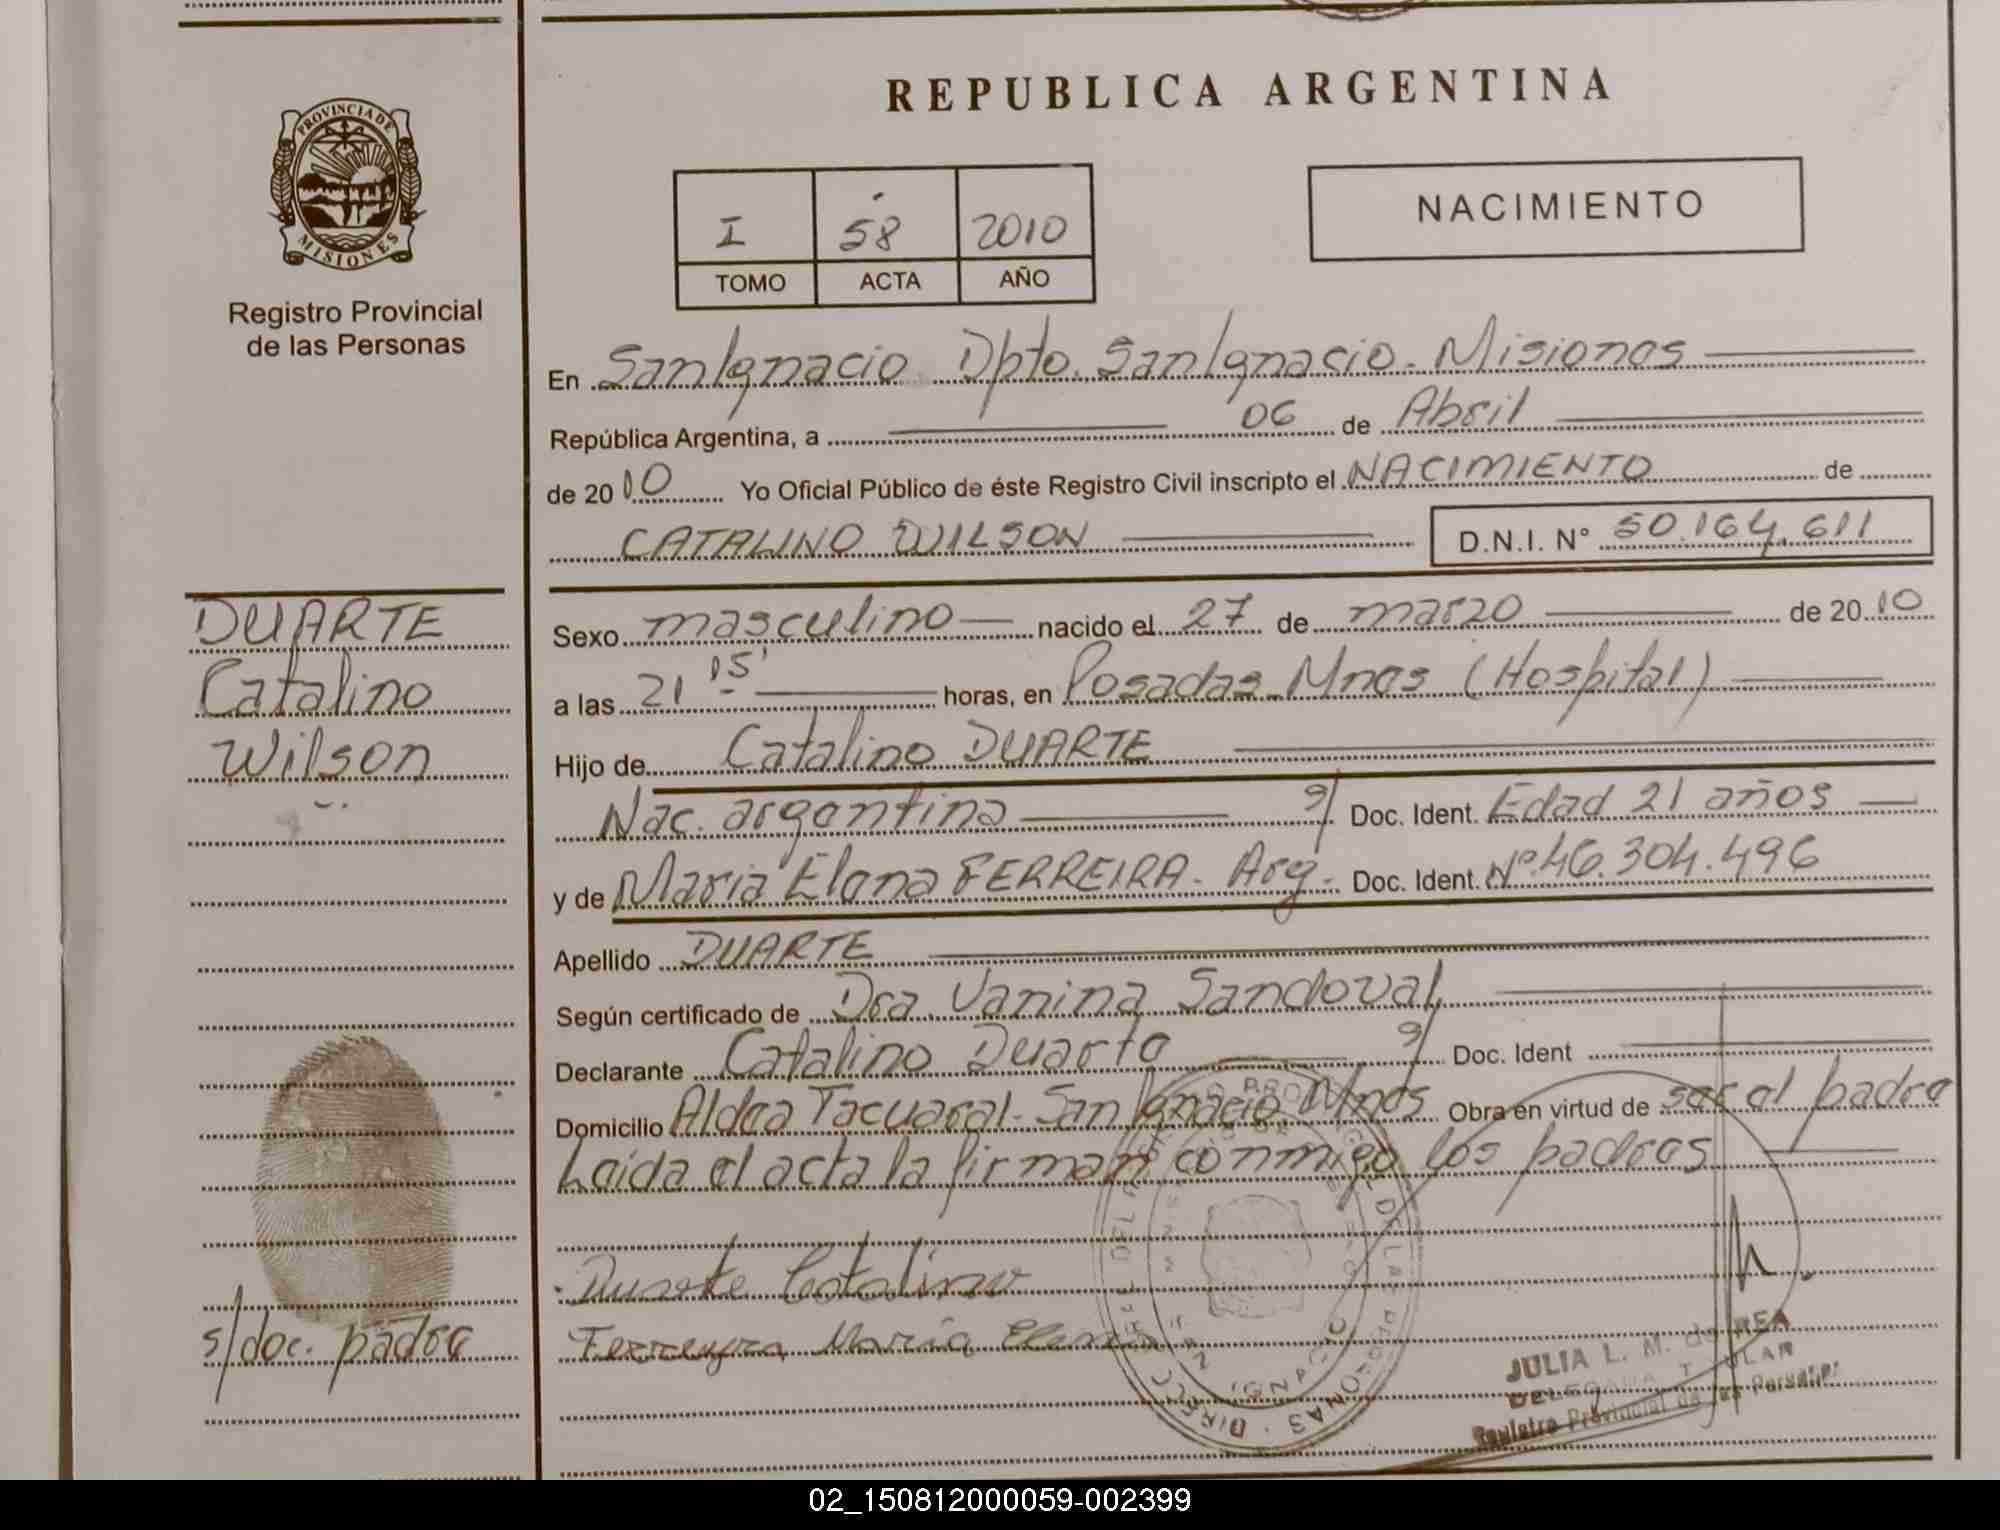 REPUBLICA ARGENTINA
PROVINCIA DE MISIONES
Registro Provincial
de las Personas
I 58 2010
TOMO ACTA AÑO
NACIMIENTO
En San Ignacio Dpto. San Ignacio - Misiones
República Argentina, a 06 de Abril
de 2010 Yo Oficial Público de éste Registro Civil inscripto el NACIMIENTO de
CATALINO WILSON D.N.I. N° 50.164.611
DUARTE
Catalino
Wilson
Sexo masculino nacido el 27 de marzo de 2010
a las 21 15' horas, en Posadas - Mnes (Hospital)
Hijo de Catalino DUARTE
Nac. argentina Doc. Ident. Edad 21 años
y de Maria Elena FERREIRA - Arg. Doc. Ident. Nº 46.304.496
Apellido DUARTE
Según certificado de Dra. Vanina Sandoval
Declarante Catalino Duarte Doc. Ident
Domicilio Aldea Tacuaral - San Ignacio Mnes Obra en virtud de ser el padre
Leida el acta la firman conmigo los padres
Duarte Catalino
Ferreyra Maria Elena
s/doc. padre
JULIA L. M. de REA
DELEGADA TITULAR
Registro Provincial de las Personas
02_150812000059-002399